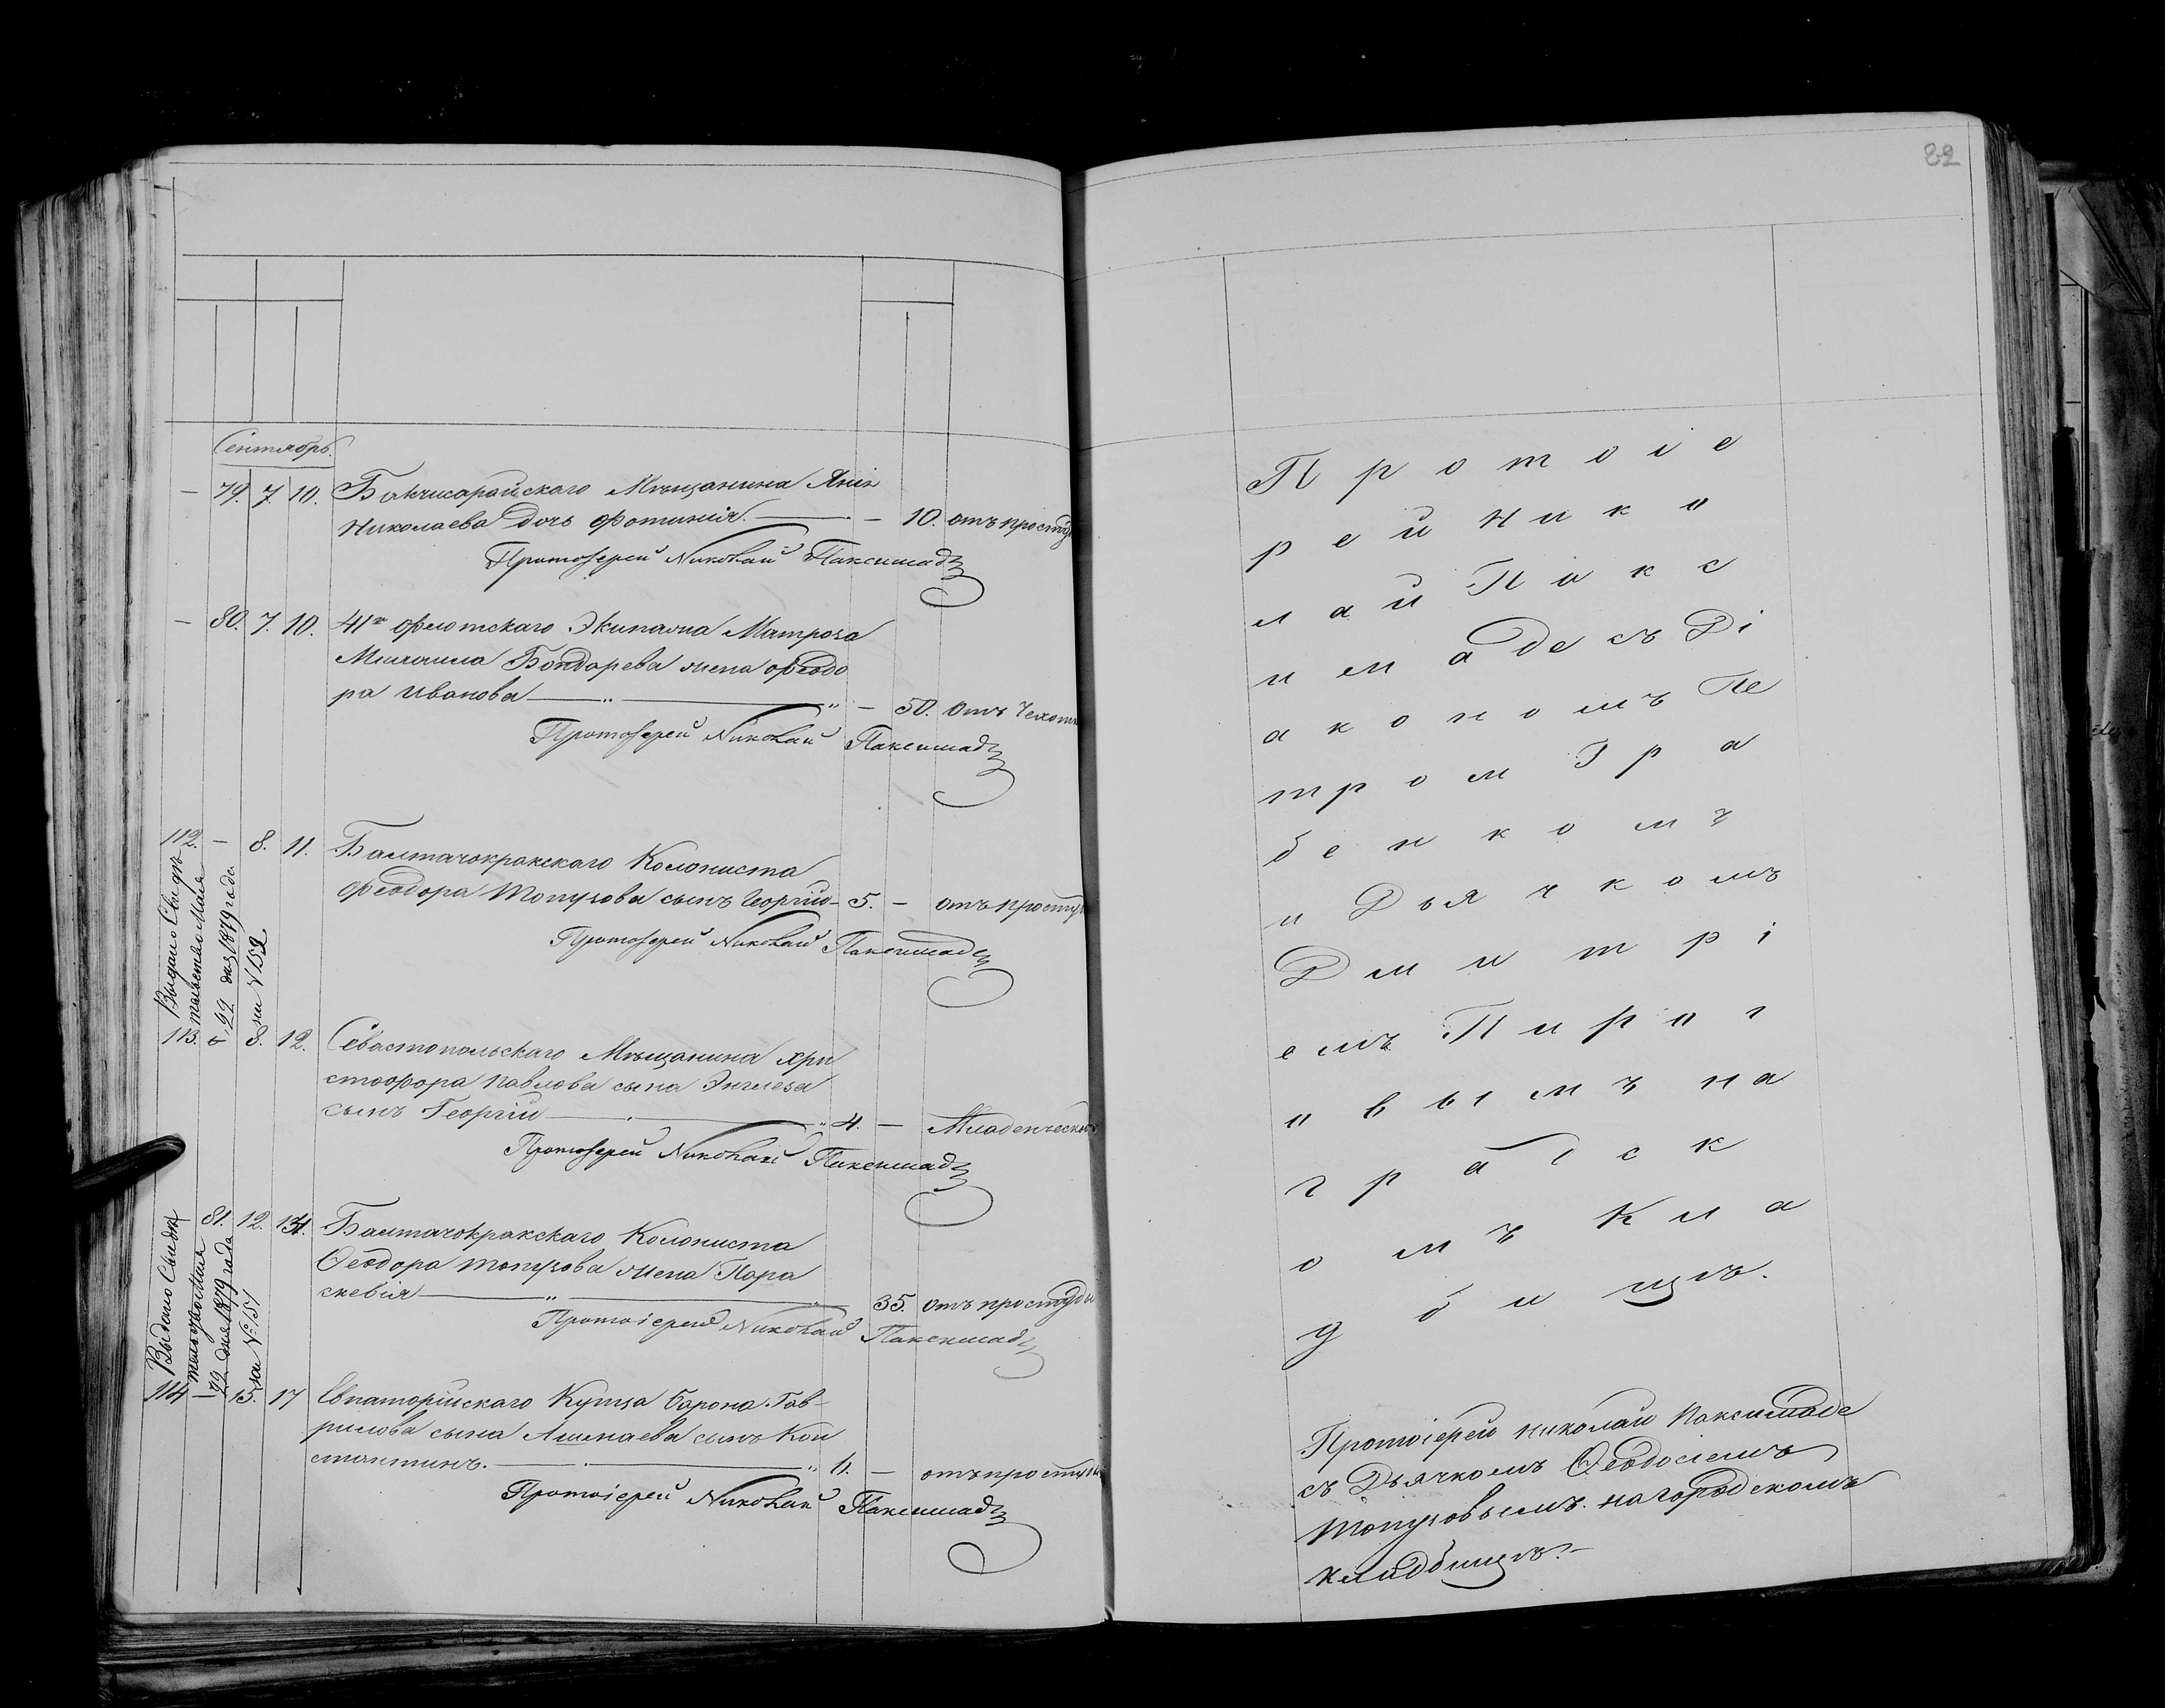 82
Сентябрь.
— 79. 7. 10. Бахчисарайскаго Мѣщанина
Николаева дочь Фотинія. — — 10. отъ просту
Протоіерей Николай Паксимаде
— 80. 7. 10. 41го флотскаго Экипажа Матроза
Михаила Бондарева жена Феодо
ра Иванова — „ — „ — 50. отъ Чахот
Протоіерей Николай Паксимаде
112. — 8. 11. Балтачокракскаго Колониста
Феодора Топузова сынъ Георгій — 5. — отъ просту
Протоіерей Николай Паксимаде
Выдано Свидѣ
тельство Мая
22 дня 1879 года
за № 152
113. 8. 12. Севастопольскаго Мѣщанина Хри
стофора Павлова сына
сынъ Георгій — „ 4. — Младенческой
Протоіерей Николай Паксимаде
81. 12. 14. Балтачокракскаго Колониста
Ѳеодора Топузова жена Пара
скевія — „ — „ 35. отъ простуды
Протоіерей Николай Паксимаде
Выдано Свидѣ
тельство Мая
22 дня 1879 года
за № 151
114 — 15. 17 Евпаторійскаго Купца Гав-
рилова сына сынъ Кон
стантинъ. — „ — отъ просту
Протоіерей Николай Паксимаде
Протоіе
рей Нико
лай Пакс
имаде съ Ді
акономъ Пе
тром Гра
бенкомъ
и Дьячкомъ
Дмитрі
емъ Пирог
овымъ на
градск
омъ Кла
дбищѣ.
Протоіерей Николай Паксимаде
съ Дьячкомъ Ѳеодосіемъ
Топузовымъ на городскомъ
кладбищѣ.—